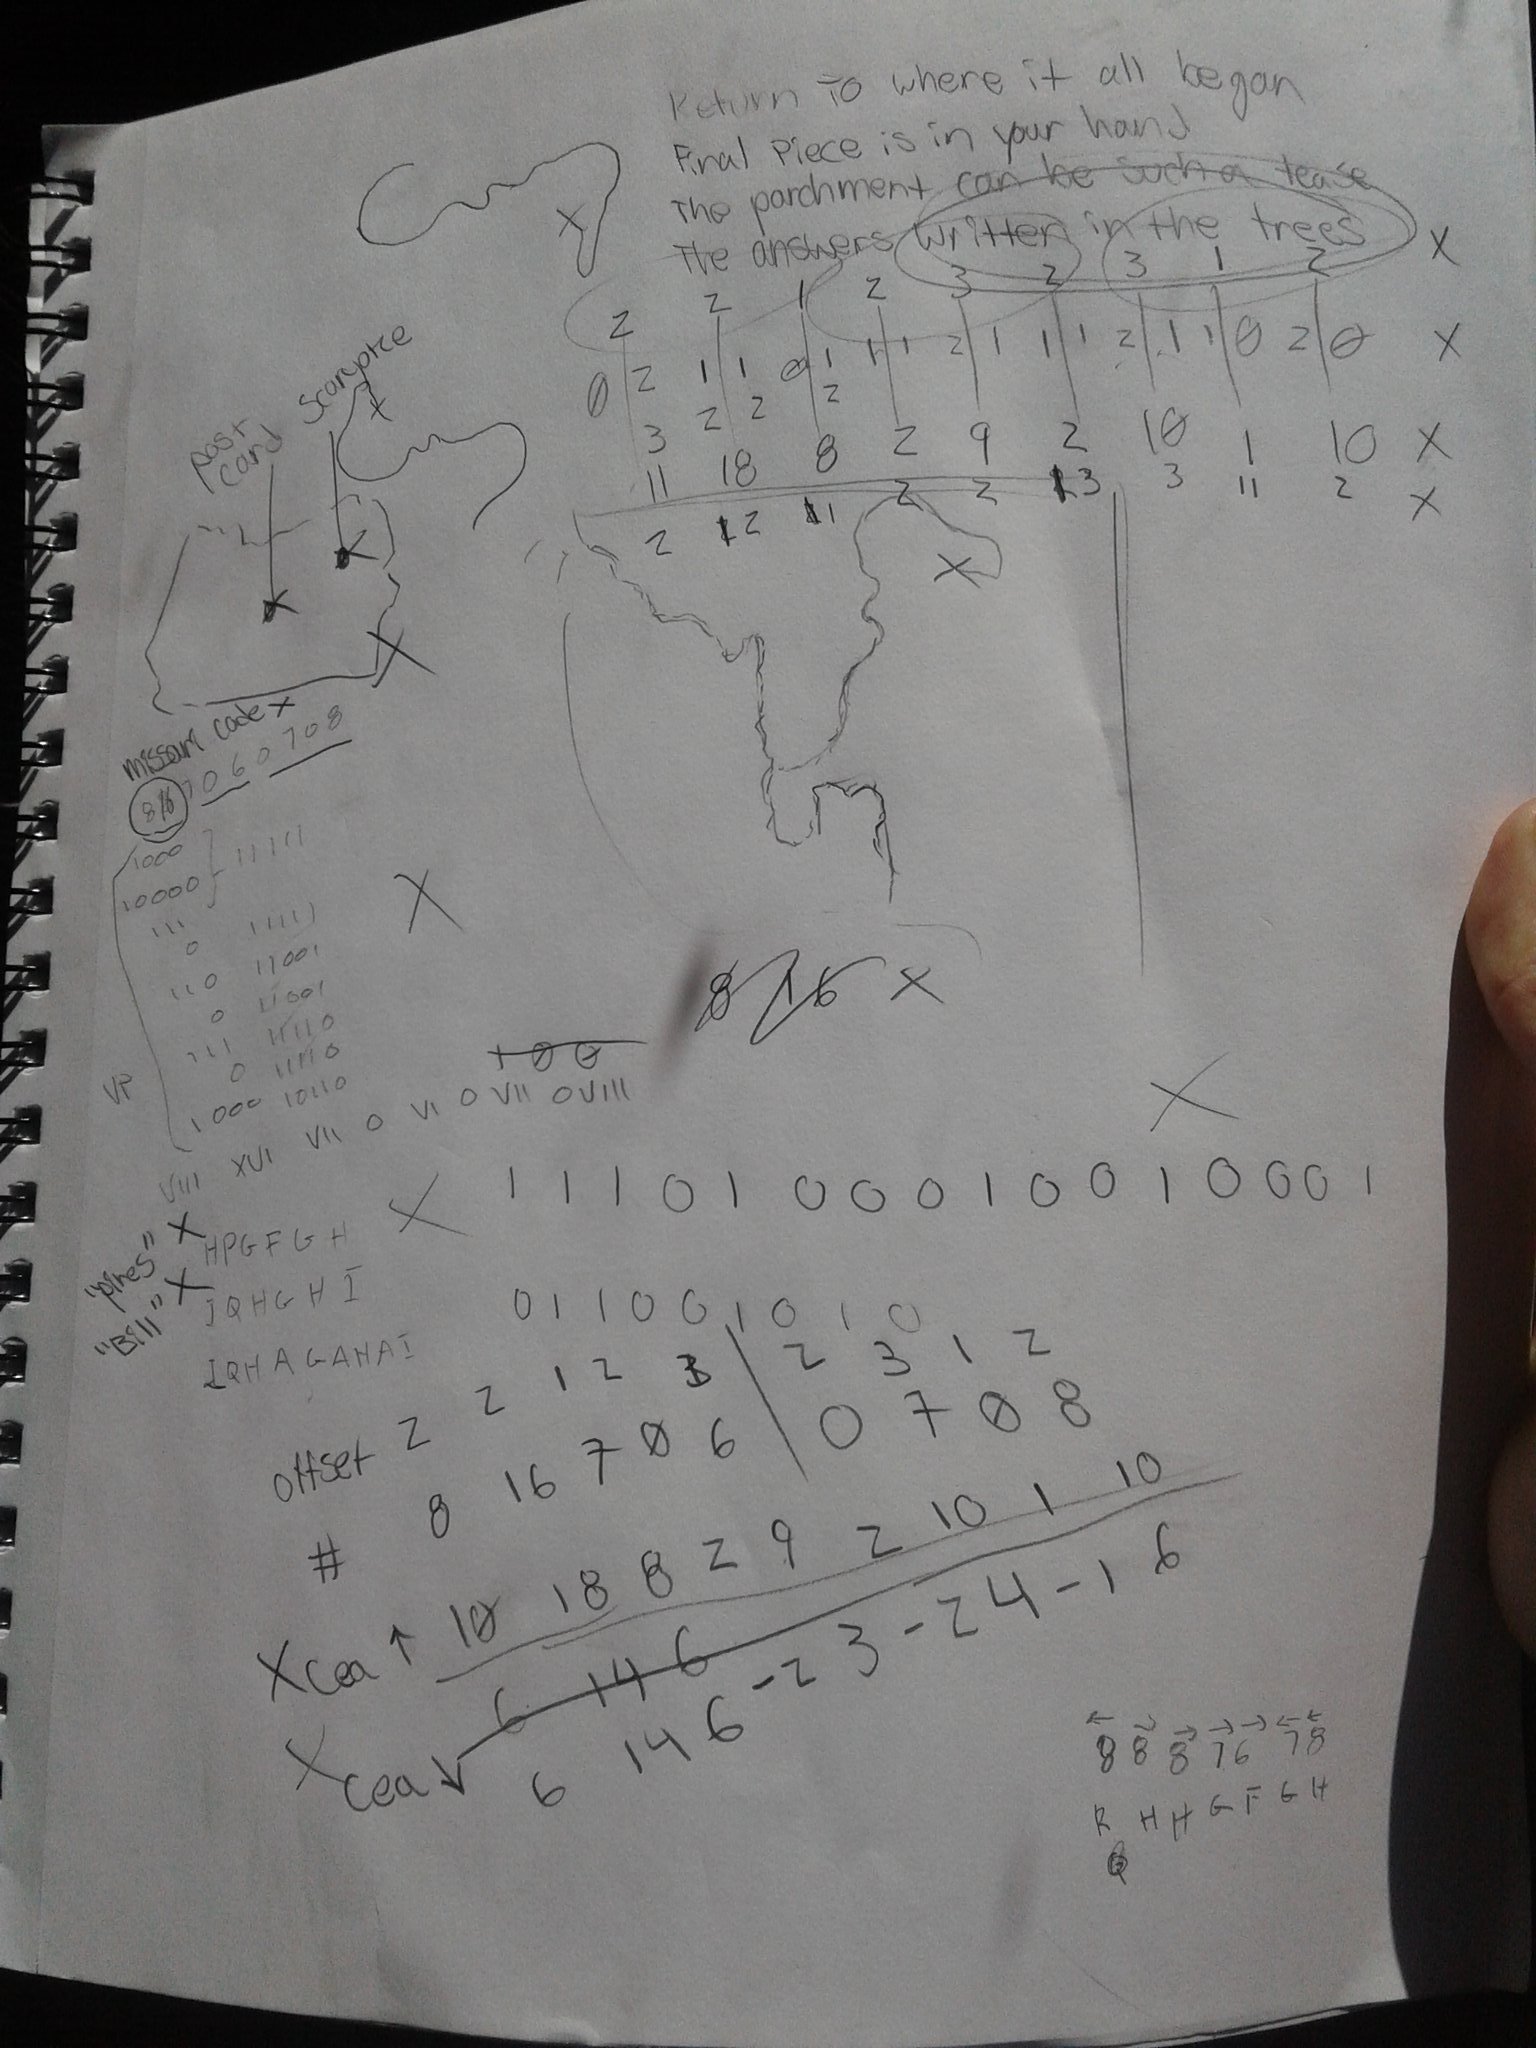 Return to where it all began
Final Piece is in your hand
The parchment can be such a tease
The answers written in the trees X
2 2 1 2 3 2 3 1 2
0 2 1 1 0 1 1 1 2 1 1 1 2 1 1 0 2 0 X
3 2 2 2
11 18 8 2 9 2 10 1 10 X
2 12 11 2 2 13 3 11 2 X
X
post card
X
X
X
X
missouri code X
816 7 0 6 0 7 0 8
1000
10000 11111
111
0 11111
110 11001
0 11001
111 11110
0 11110
1000 10110
VP
X
816 X
100
VIII XVI VII 0 VI 0 VII 0 VIII
X
X 1 1 1 0 1 0 0 0 1 0 0 1 0 0 0 1
"pines" X HPGFGH
"Bill" X JQHGHI
IQHAGAHAI
0 1 1 0 0 1 0 1 0
offset 2 2 1 2 3 2 3 1 2
# 8 16 7 0 6 0 7 0 8
X Cea ↑ 10 18 8 2 9 2 10 1 10
6 14 6
X Cea ↓ 6 14 6 -2 3 -2 4 -1 6
← → → → → ← ←
8 8 8 7 6 7 8
R H H G F G H